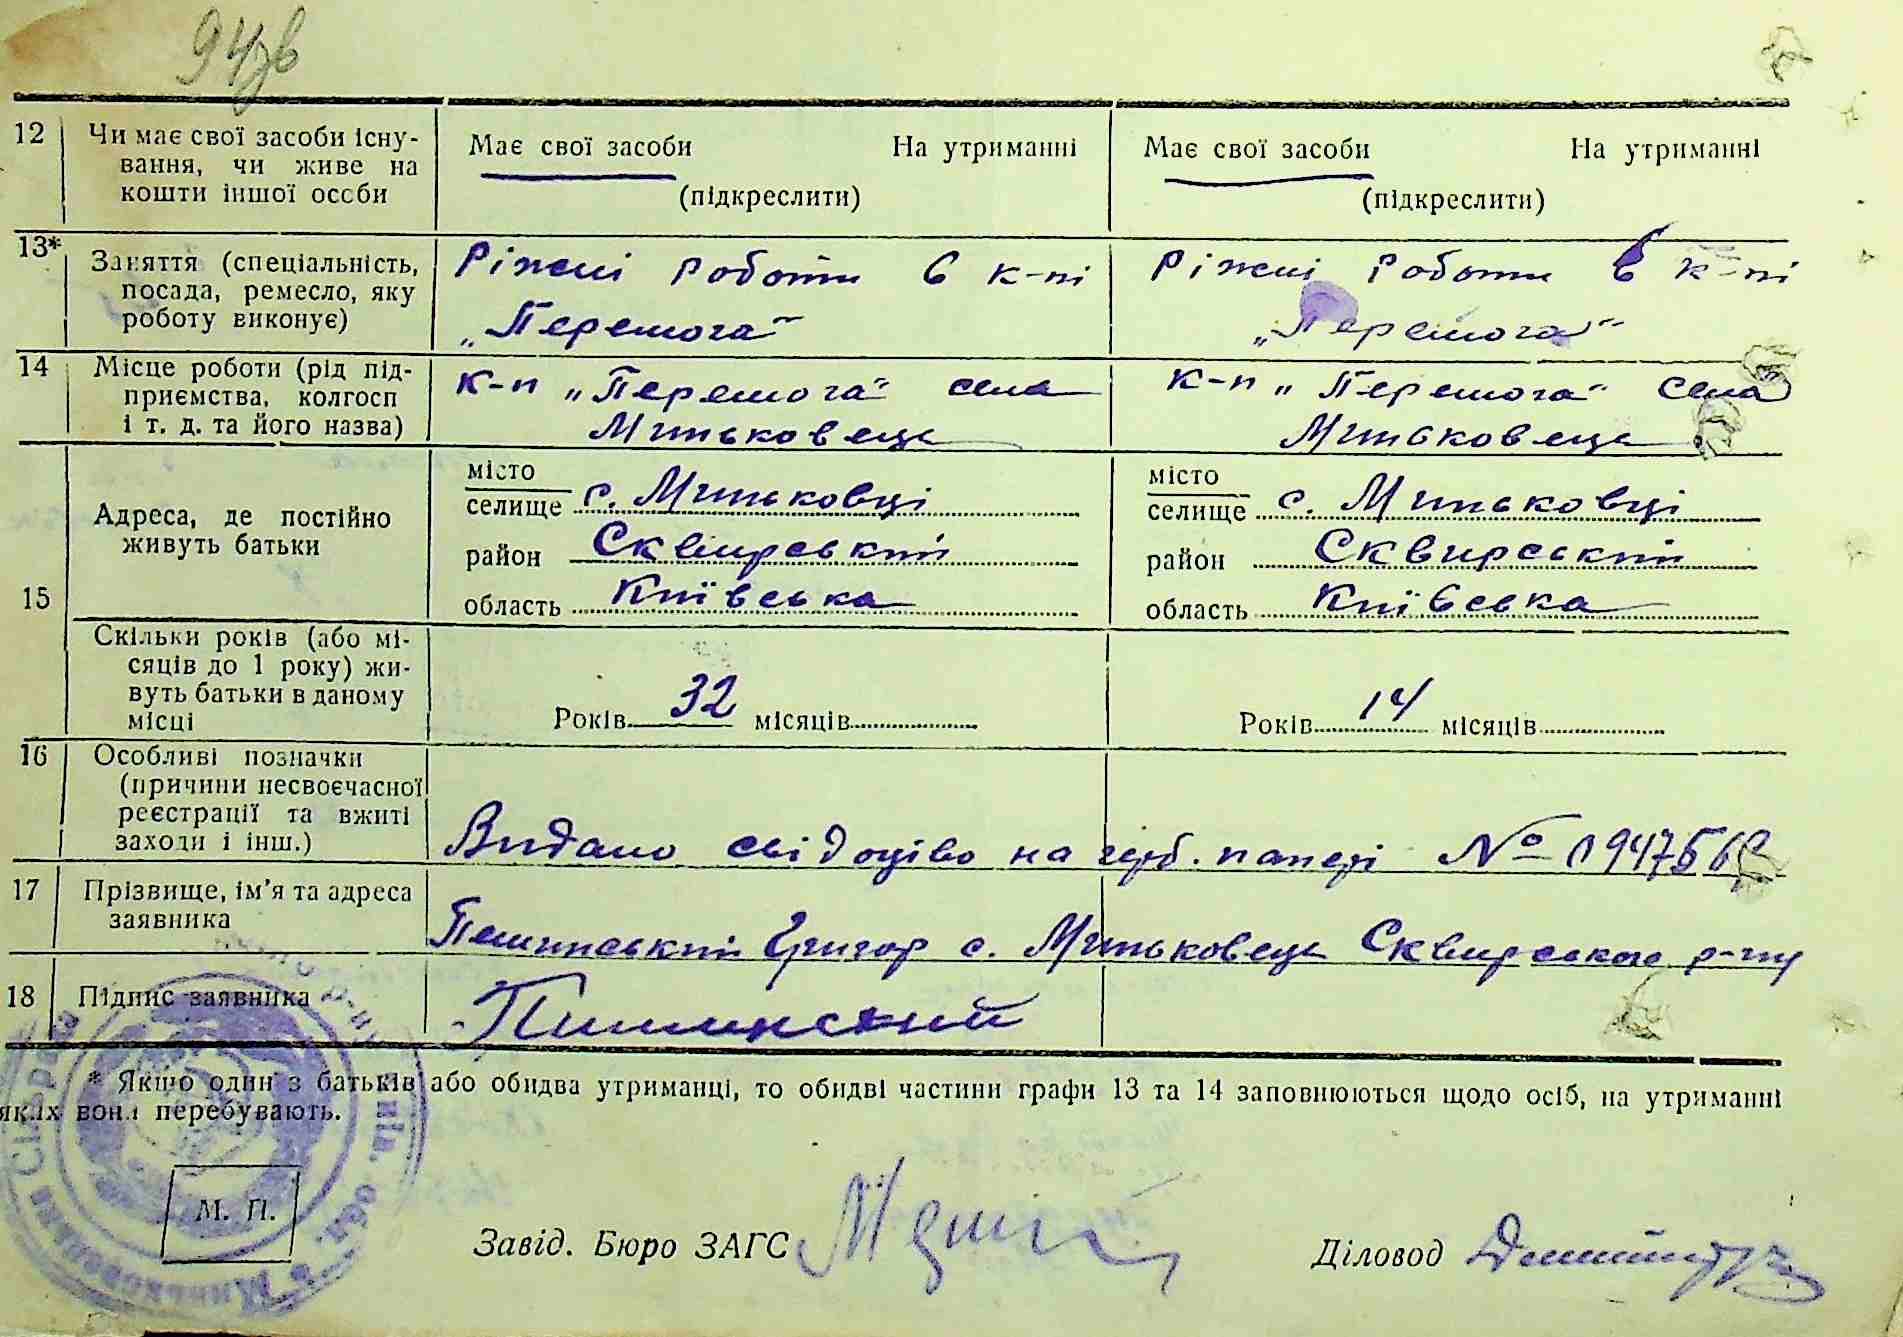 94зв
12 Чи має свої засоби існу-
вання, чи живе на
кошти іншої особи
Має свої засоби На утриманні
(підкреслити)
Має свої засоби На утриманні
(підкреслити)
13* Заняття (спеціальність,
посада, ремесло, яку
роботу виконує)
Ріжні роботи в к-пі
„Перемога"
Ріжні роботи в к-пі
„Перемога"
14 Місце роботи (рід під-
приємства, колгосп
і т. д. та його назва)
к-п „Перемога" села
Миньковець
к-п „Перемога" села
Миньковець
15 Адреса, де постійно
живуть батьки
місто
селище с. Миньковці
район Сквирський
область Київська
місто
селище с. Миньковці
район Сквирський
область Київська
Скільки років (або мі-
сяців до 1 року) жи-
вуть батьки в даному
місці
Років 32 місяців
Років 14 місяців
16 Особливі позначки
(причини несвоєчасної
реєстрації та вжиті
заходи і інш.)
Видано свідоцтво на герб. папері №
17 Прізвище, ім'я та адреса
заявника
Григор с. Миньковець Сквирського р-ну
18 Підпис заявника
* Якщо один з батьків або обидва утриманці, то обидві частини графи 13 та 14 заповнюються щодо осіб, на утриманні
яких вони перебувають.
М. П.
Завід. Бюро ЗАГС
Діловод